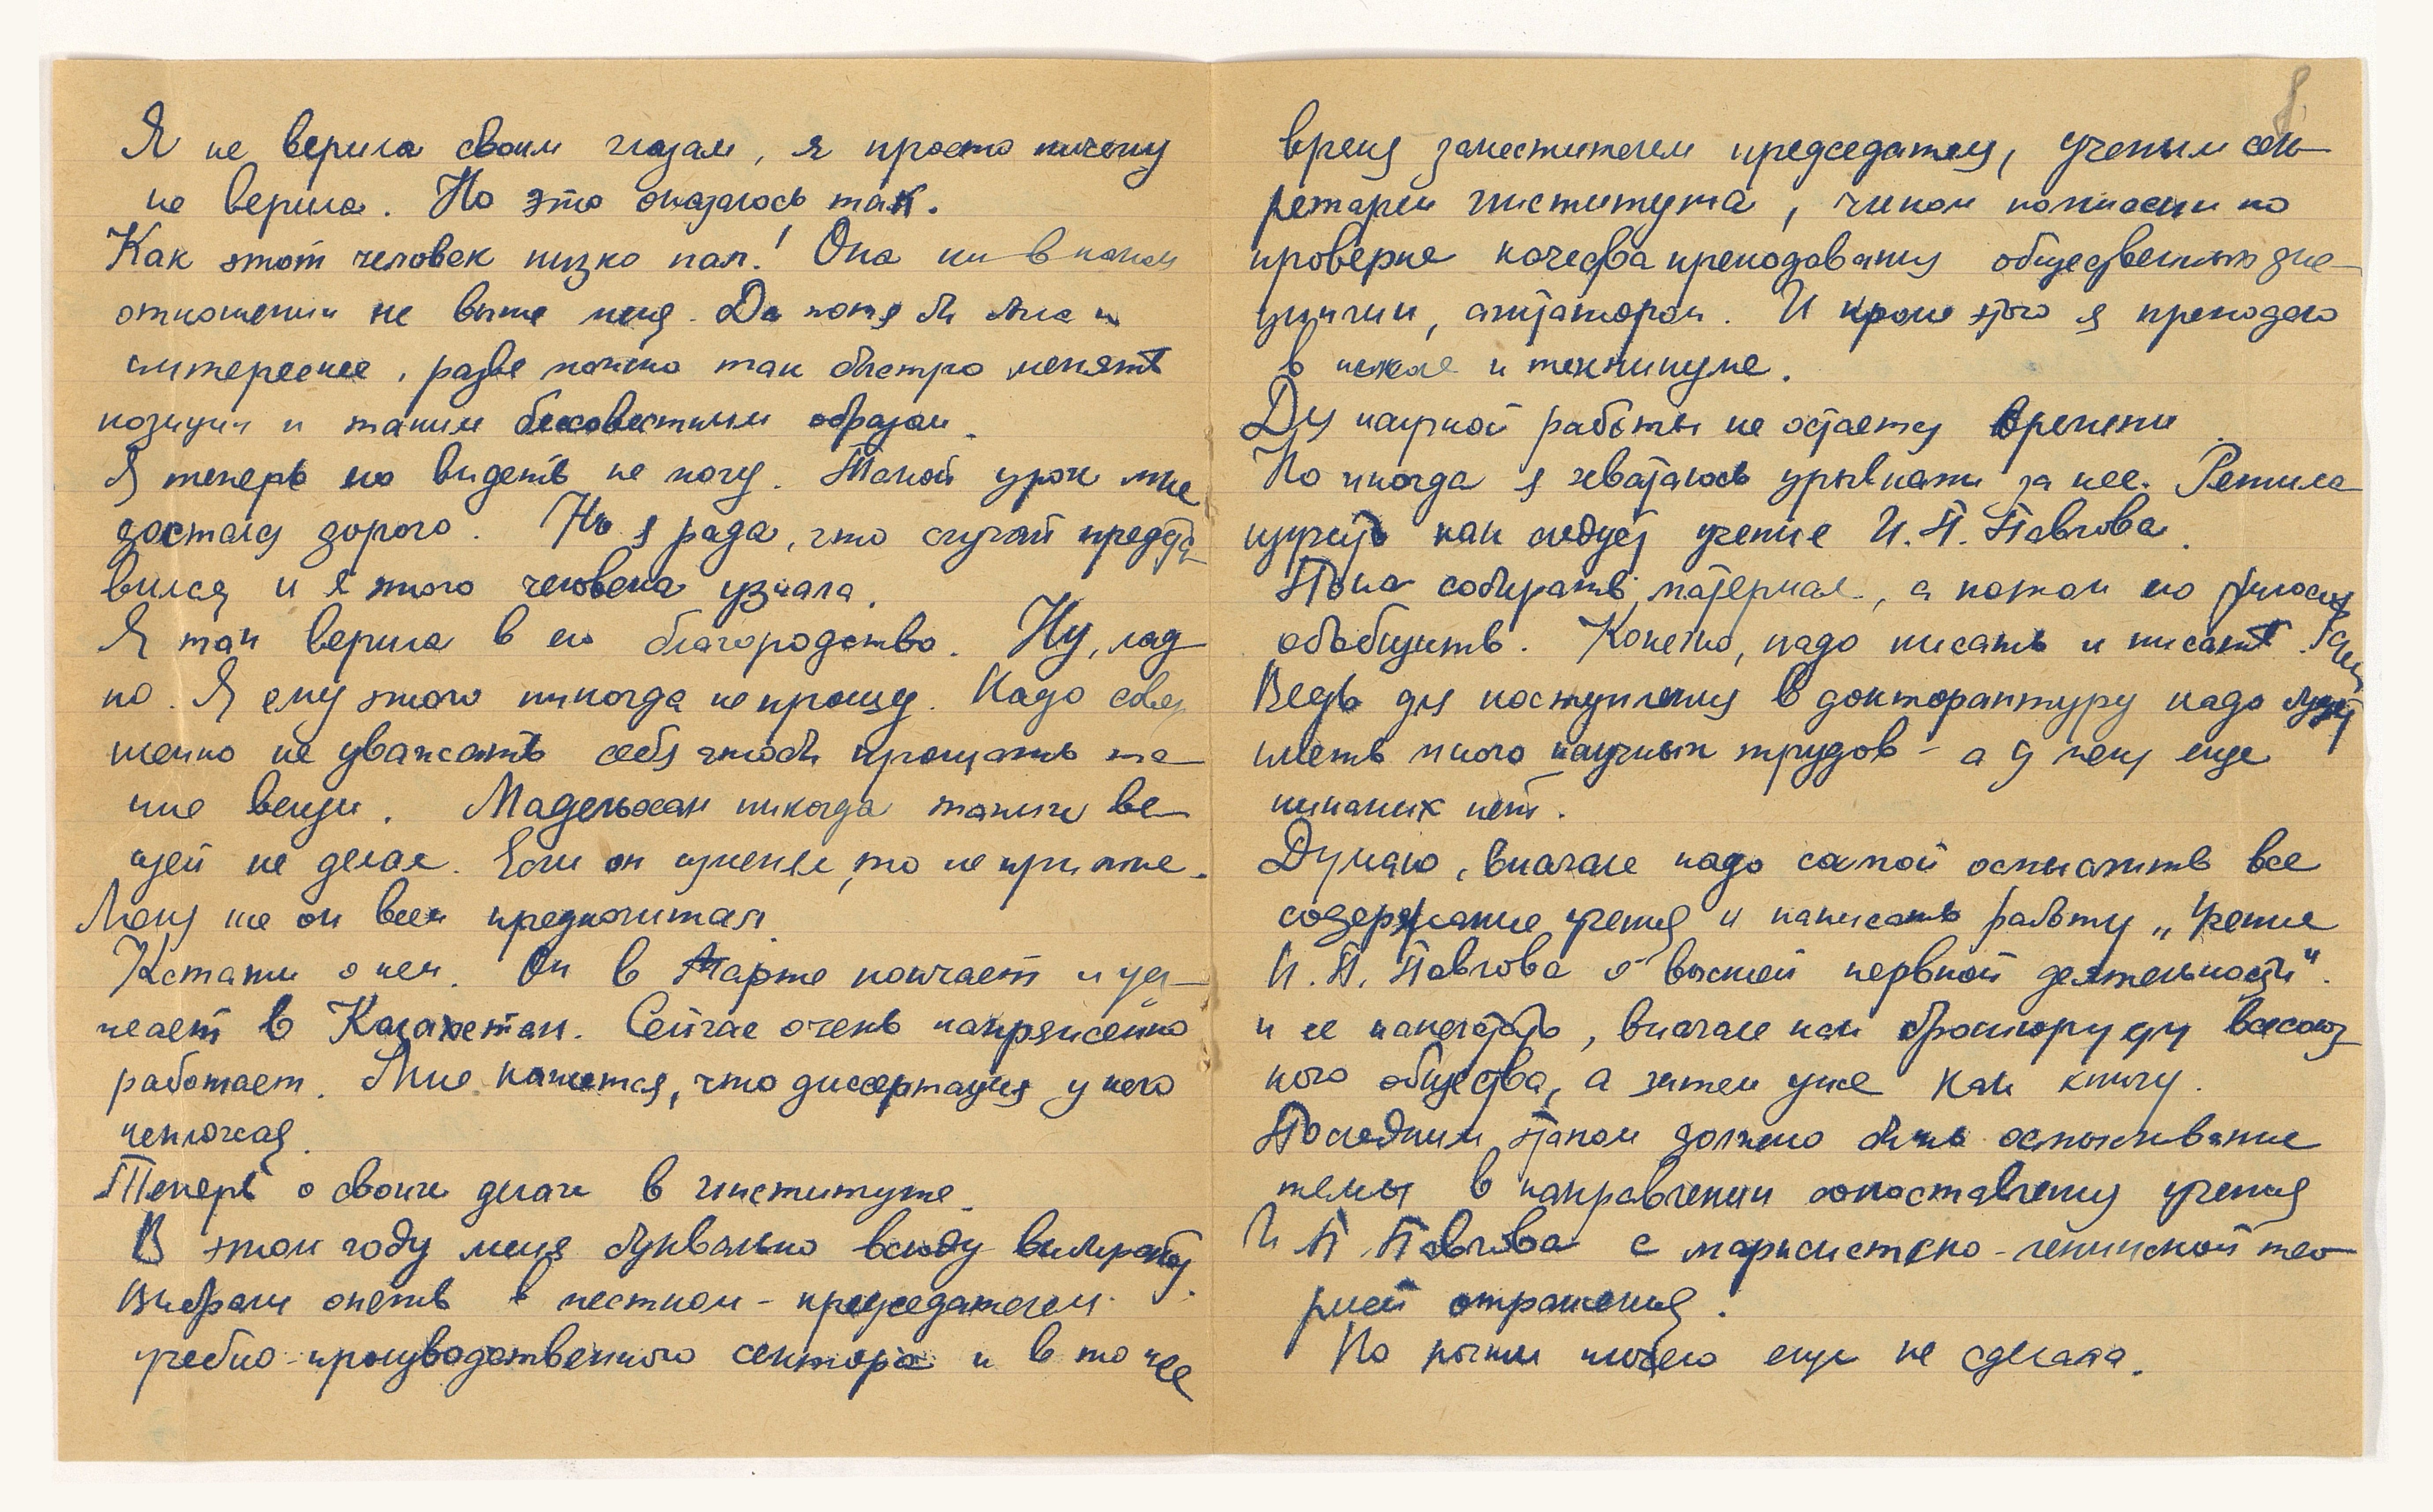 Я не верила своим глазам, я просто ничему
не верила. Но это оказалось так.
Как этот человек низко пал! Она ни в каком
отношении не выше меня. Да хотя бы была и
интереснее, разве можно так быстро менять
позиции и таким бессовестным образом.
Я теперь его видеть не могу. Такой урок мне
достался дорого. Но я рада, что случай предста
вился и я этого человека узнала.
Я так верила в его благородство. Ну, лад
но. Я ему этого никогда не прощу. Надо совер
шенно не уважать себя чтобы прощать та-
кие вещи. Мадельхан никогда таких ве-
щей не делал. Если он изменял, то не при мне.
Меня же он всем предпочитал.
Кстати о нем. Он в Марте кончает и уез-
жает в Казахстан. Сейчас очень напряженно
работает. Мне кажется, что диссертация у него
неплохая.
Теперь о своих делах в институте.
В этом году меня буквально всюду выбирают.
Выбрали опять в местком - председателем
учебно-производственного сектора и в то же
время заместителем председателя, ученым сек-
ретарем института, членом комиссии по
проверке качества преподавания общественных дис-
циплин, агитатором. И кроме этого я преподаю
в школе и техникуме.
Для научной работы не остается времени.
Но иногда я хватаюсь урывками за нее. Решила
изучить как следует учение И.П. Павлова.
Пока собирать материал, а потом его философ
обобщить. Конечно, надо писать и писать.
Ведь для поступления в докторантуру надо
иметь много научных трудов - а у меня еще
никаких нет.
Думаю, вначале надо самой осмыслить все
содержание учения и написать работу „Учение
И.П. Павлова о высшей нервной деятельности".
и ее напечатать, вначале как брошюру для всесоюз
ного общества, а затем уже как книгу.
Последним этапом должно быть осмысливание
темы в направлении сопоставления учения
И П Павлова с марксистско-ленинской тео-
рией отражения.
Но почти ничего еще не сделала.